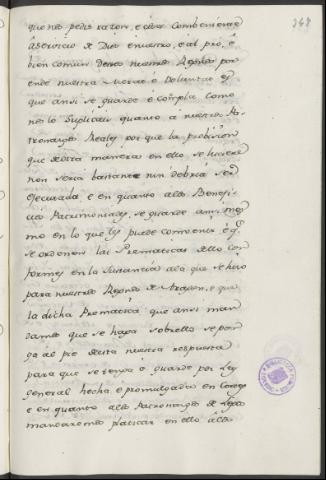 368
que nos pedis razon, è cosa combeniente
à servicio de Dios è nuestro, è al pró, è
bien comun destos nuestros Regnos por
ende nuestra merced è voluntad es
que ansi se guarde è cumpla como
nos lo suplicais quanto à nuestros Pa-
tronazgos Reales por que la probision
que de otra manera en ello se hiciere
non seria bastante nin debria ser
executada è en quanto à los Benefi-
cios Patrimoniales, se guarde ansi mes-
mo en lo que les puede combenir è q.e
se ordenen las Prematicas dello con-
formes en la sustancia à la que se hizo
para nuestros Regnos de Aragon, è que
la dicha Prematica que ansi man-
damos que se haga sobrello se pon-
ga al pie desta nuestra respuesta
para que se tenga è guarde por Ley
general hecha è promulgada en Cortes
è en quanto à los Patronazgos de Legos
mandaremos platicar en ello à los